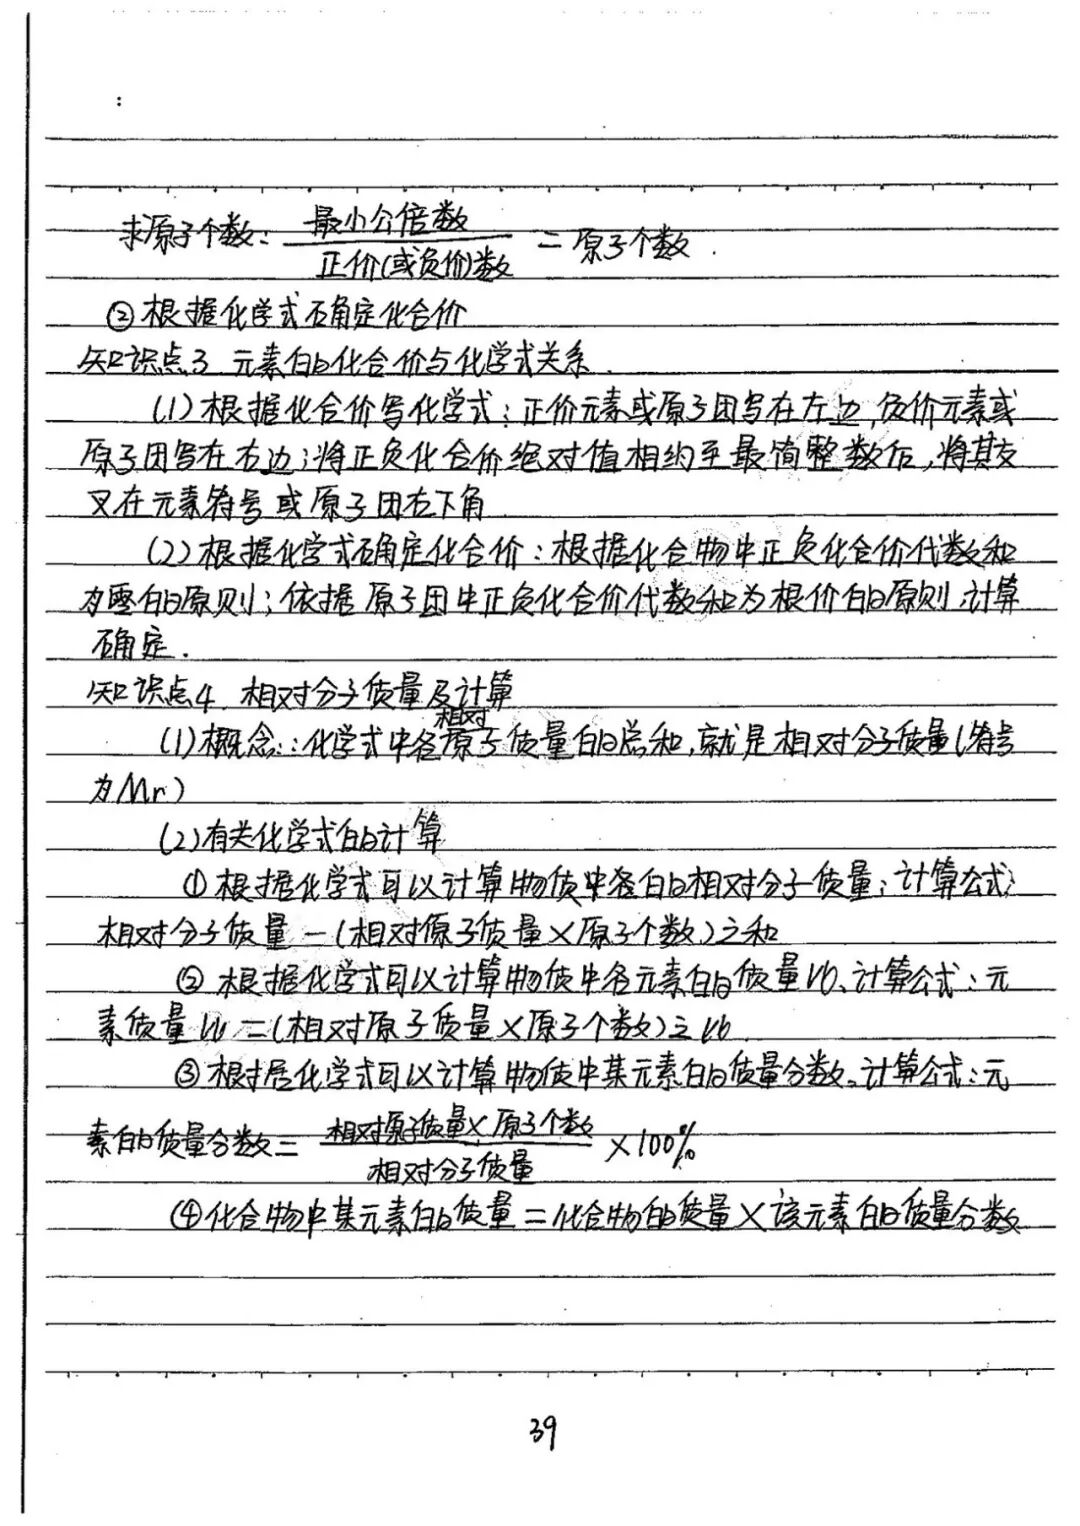 :
求原子个数: 最小公倍数/正价(或负价)数 = 原子个数.
②根据化学式确定化合价
知识点3 元素的化合价与化学式关系.
(1)根据化合价写化学式:正价元素或原子团写在左边,负价元素或
原子团写在右边;将正负化合价绝对值相约至最简整数后,将其交
叉在元素符号或原子团右下角
(2)根据化学式确定化合价:根据化合物中正负化合价代数和
为零的原则;依据原子团中正负化合价代数和为根价的原则,计算
确定.
知识点4.相对分子质量及计算
(1)概念::化学式中各相对原子质量的总和,就是相对分子质量(符号
为Mr)
(2)有关化学式的计算
①根据化学式可以计算物质中各的相对分子质量;计算公式:
相对分子质量=(相对原子质量×原子个数)之和
②根据化学式可以计算物质中各元素的质量比、计算公式:元
素质量比=(相对原子质量×原子个数)之比.
③根据化学式可以计算物质中某元素的质量分数。计算公式:元
素的质量分数= 相对原子质量×原子个数/相对分子质量 ×100%
④化合物中某元素的质量=化合物的质量×该元素的质量分数
39